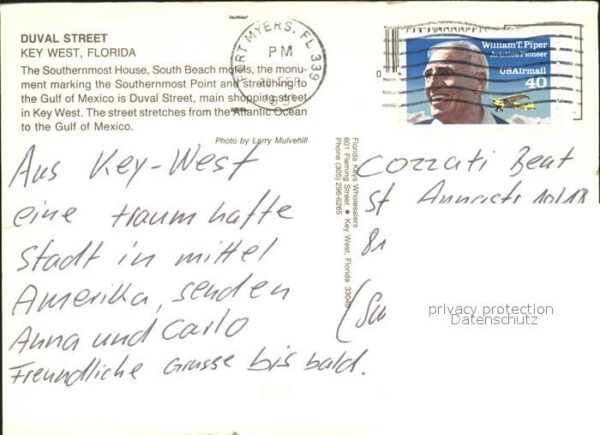 DUVAL STREET
KEY WEST, FLORIDA
The Southernmost House, South Beach motels, the monu-
ment marking the Southernmost Point and stretching to
the Gulf of Mexico is Duval Street, main shopping street
in Key West. The street stretches from the Atlantic Ocean
to the Gulf of Mexico.
Photo by Larry Mulvehill
FORT MYERS, FL 339
PM
William T. Piper
Aviation Pioneer
USAirmail
40
Aus Key-West
eine traumhafte
Stadt in mittel
Amerika, senden
Anna und Carlo
Freundliche Grusse bis bald.
Florida Keys Wholesalers
601 Fleming Street ● Key West, Florida 33040
Phone (305) 296-6265
Cozzati Beat
St
privacy protection
Datenschutz